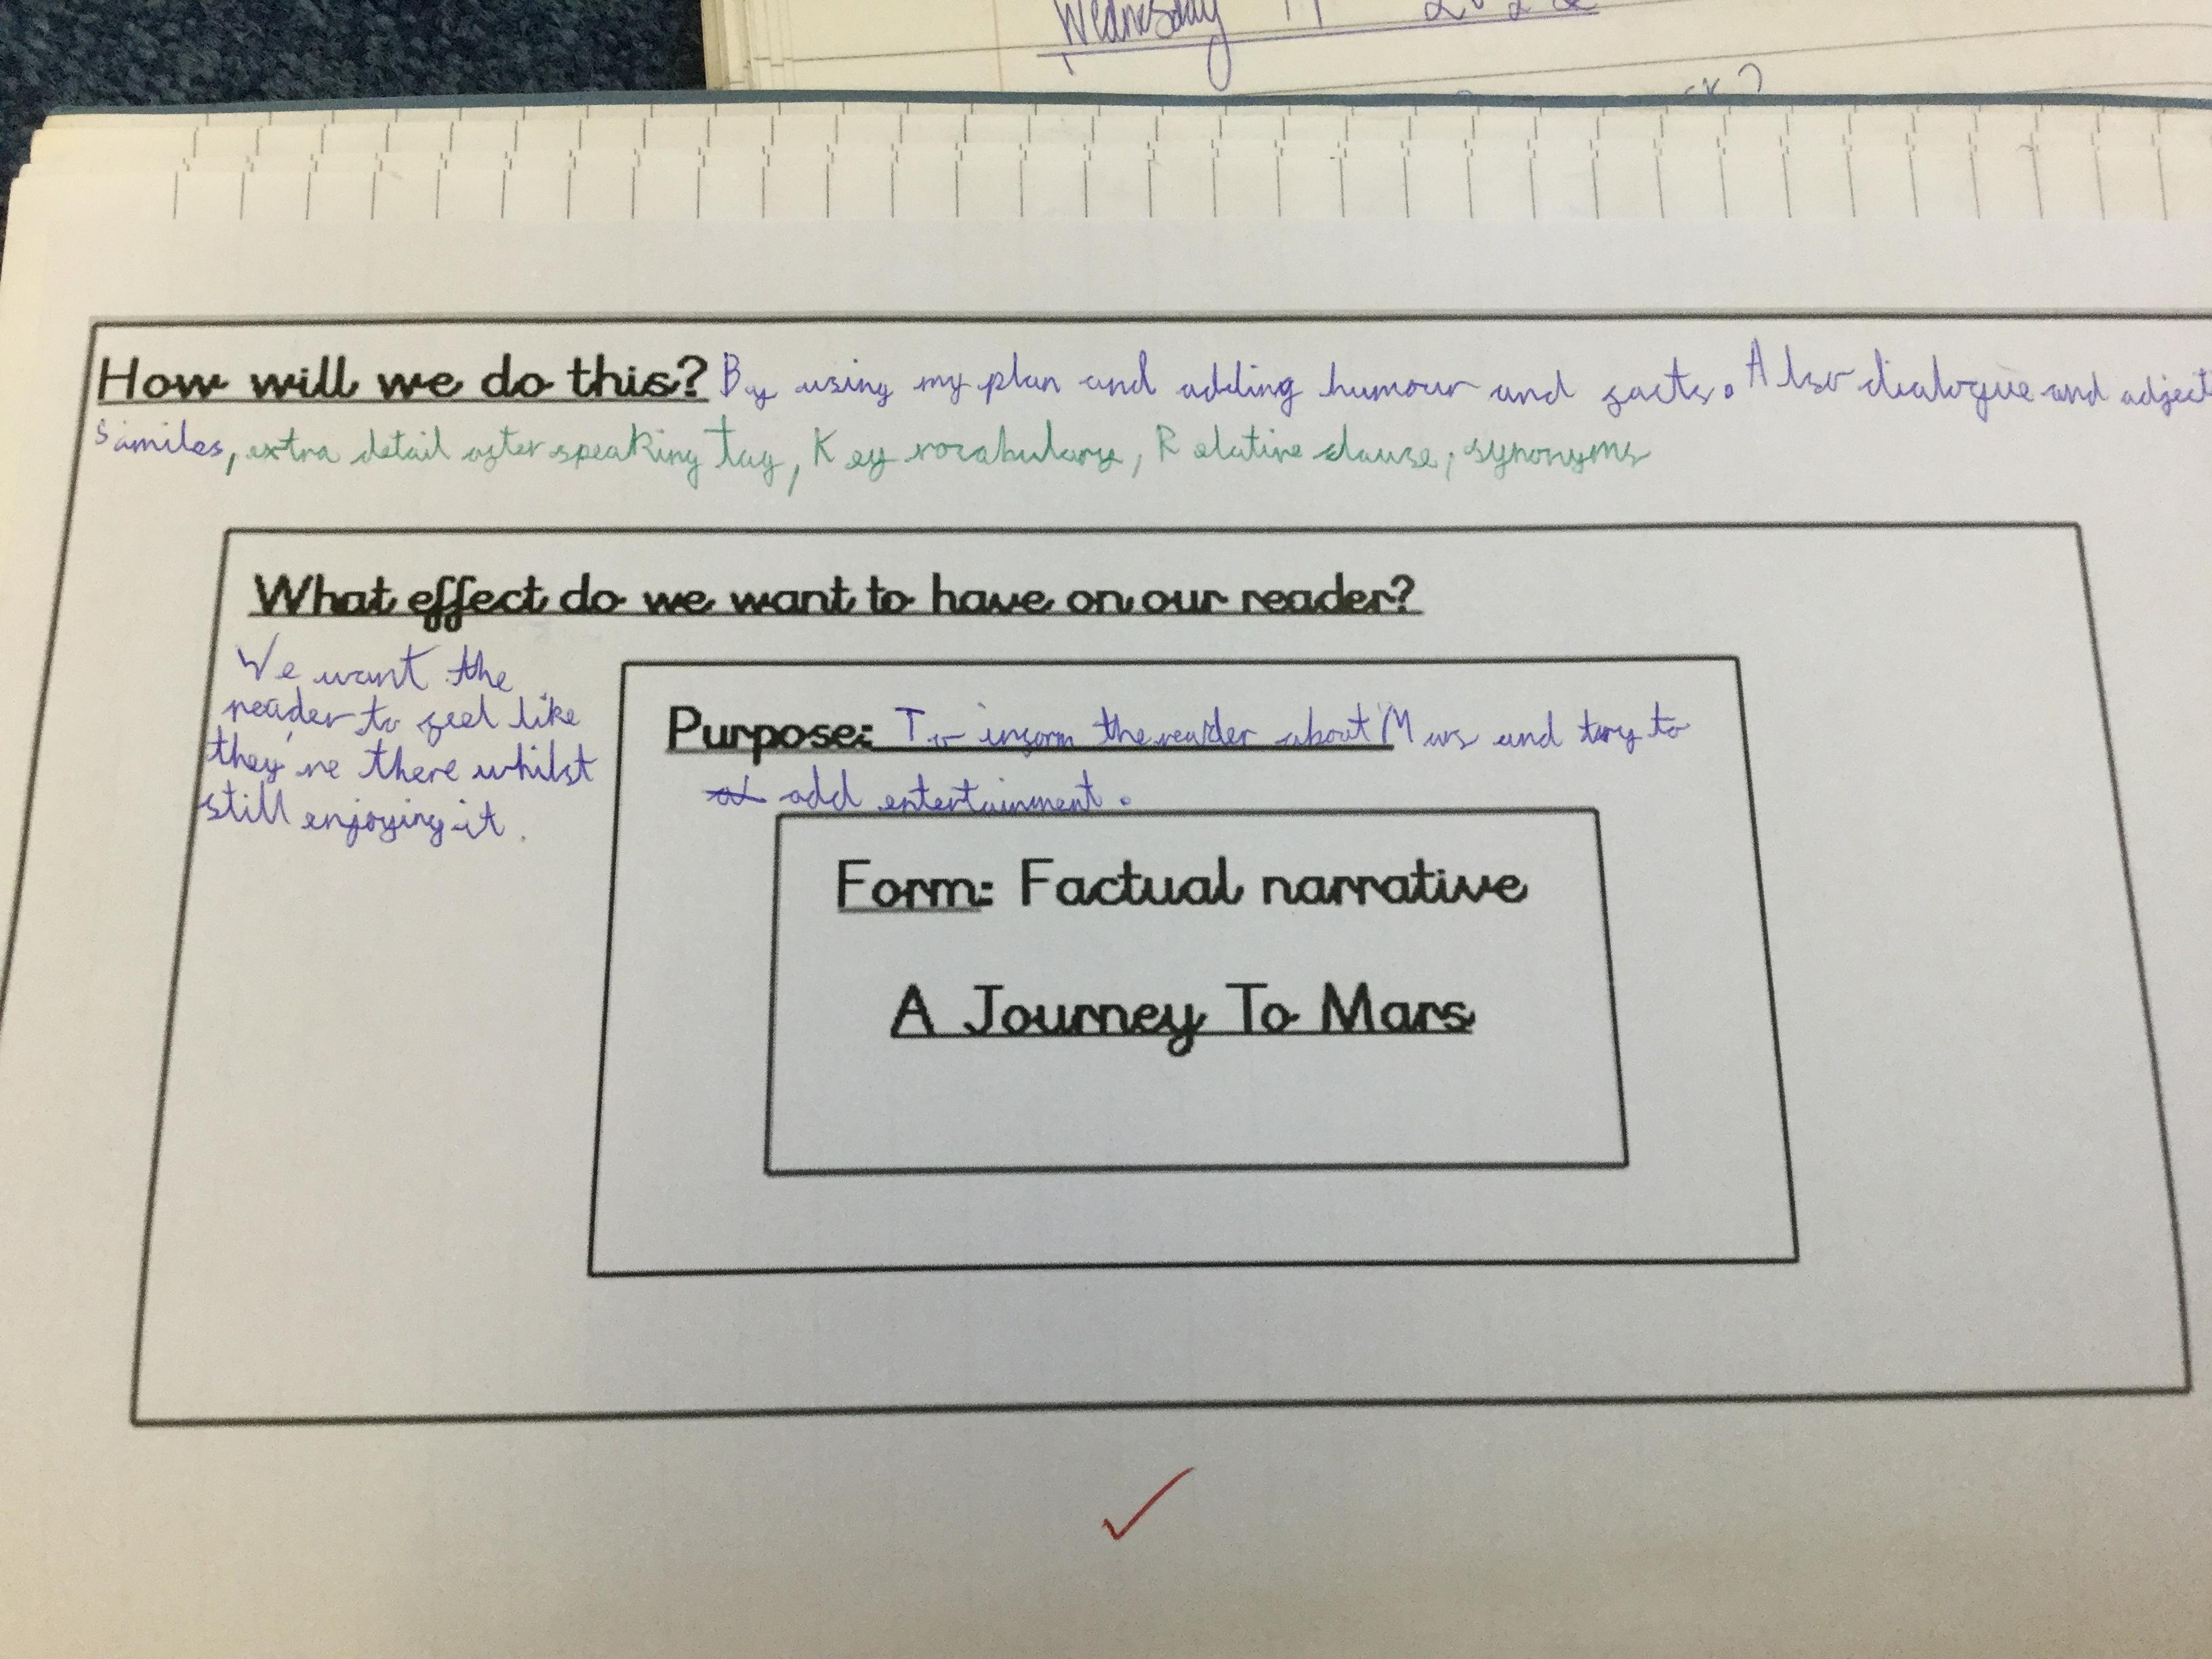 Wednesday
How will we do this? By using my plan and adding humour and facts. Also dialogue and adject
similes, extra detail after speaking tag, Key vocabulary, Relative clause, synonyms
What effect do we want to have on our reader?
We want the
reader to feel like
they're there whilst
still enjoying it.
Purpose: To inform the reader about Mars and try to
add entertainment.
Form: Factual narrative
A Journey To Mars